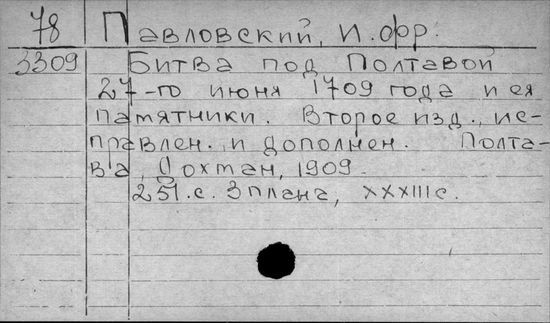 78 Павловский, И. Фр.
3309 Битва под Полтавой
27-го июня 1709 года и ея
памятники. Второе изд., ис-
правлен. и дополнен. Полта-
ва, Дохман, 1909.
251 с. 3 плана, XXXIII с.